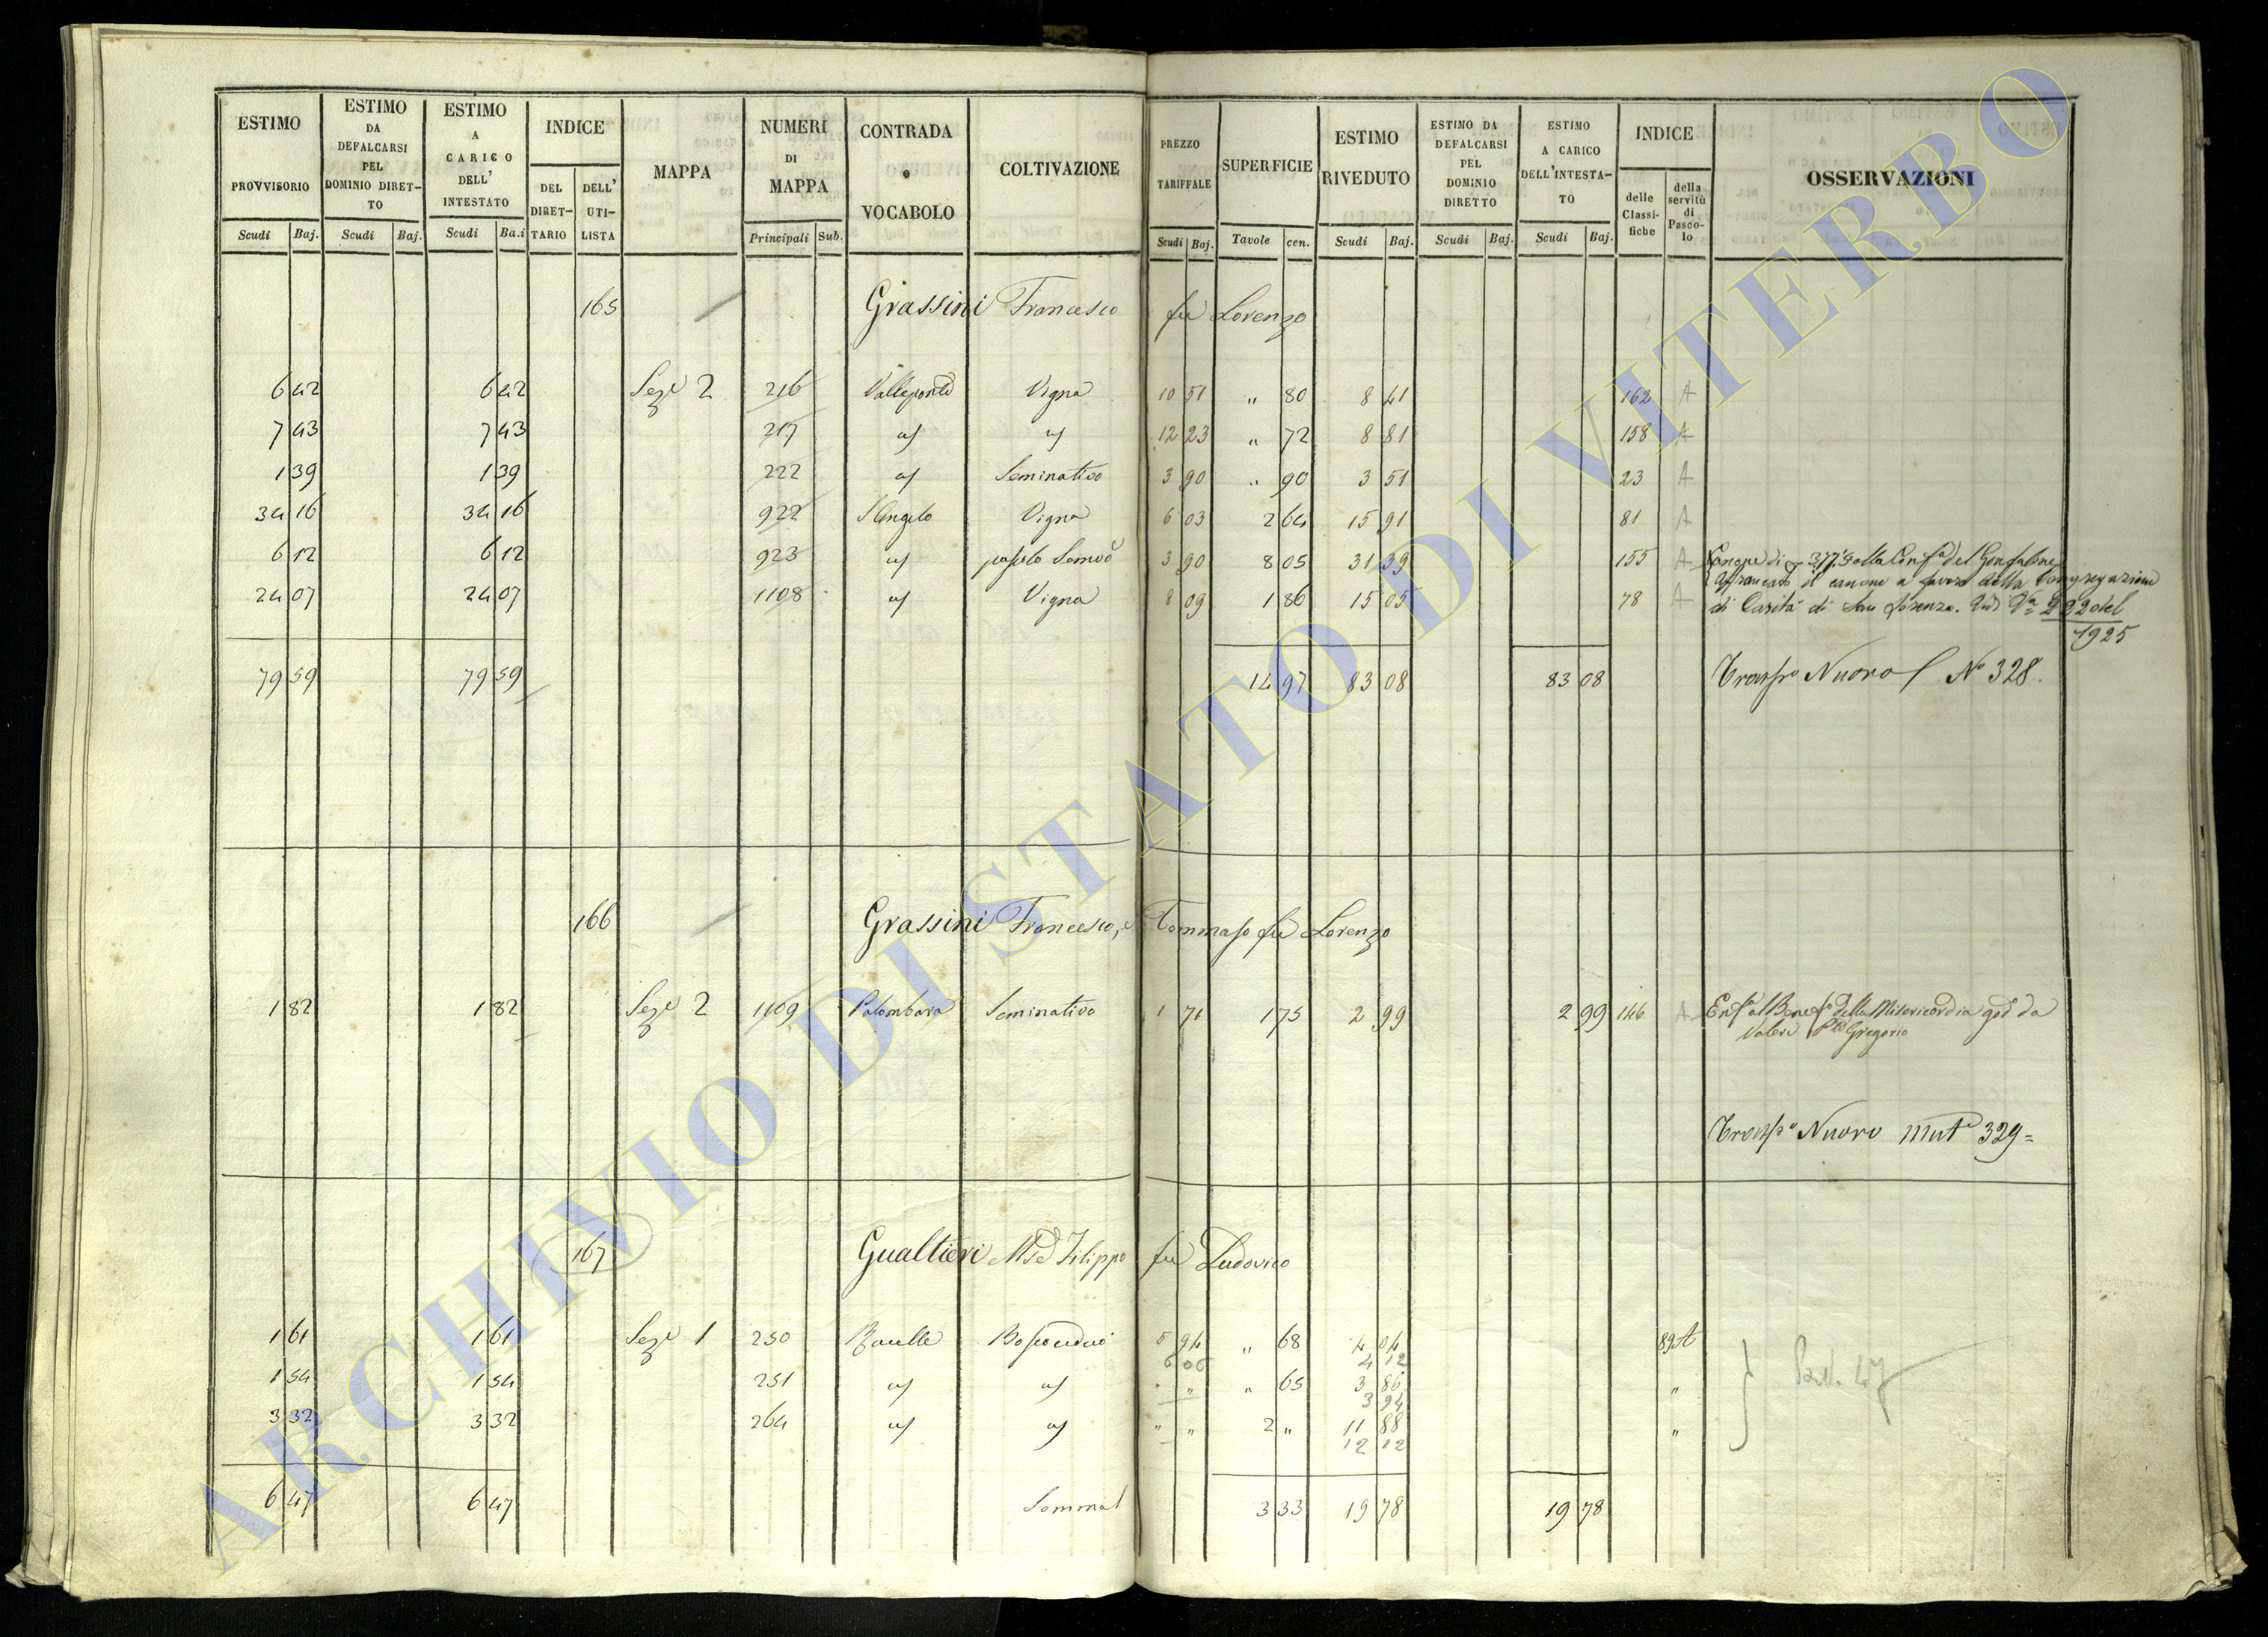 ESTIMO PROVVISORIO
ESTIMO DA DEFALCARSI PEL DOMINIO DIRETTO
ESTIMO A CARICO DELL' INTESTATO
INDICE
DEL DIRETTARIO
DELL' UTILISTA
MAPPA
NUMERI DI MAPPA
CONTRADA o VOCABOLO
COLTIVAZIONE
PREZZO TARIFFALE
SUPERFICIE
ESTIMO RIVEDUTO
ESTIMO DA DEFALCARSI PEL DOMINIO DIRETTO
ESTIMO A CARICO DELL'INTESTATO
INDICE
delle Classifiche
della servitù di Pascolo
OSSERVAZIONI
Scudi Baj. Scudi Baj. Scudi Ba.i Principali Sub. Scudi Baj. Tavole cen. Scudi Baj. Scudi Baj. Scudi Baj.
165 Grassini Francesco fu Lorenzo
6 42 6 42 Seze 2 216 Valleponte Vigna 10 51 " 80 8 41 162 A
7 43 7 43 217 " " 12 23 " 72 8 81 158 A
1 39 1 39 222 " Seminativo 3 90 " 90 3 51 23 A
34 16 34 16 922 S Angelo Vigna 6 03 2 64 15 91 81 A
6 12 6 12 923 " 3 90 8 05 31 39 155 A Canone di
Affrancato il canone a favore della Congregazione
24 07 24 07 1108 " Vigna 8 09 1 86 15 05 78 A di Carità di San Lorenzo. 292 del
1925
79 59 79 59 14 97 83 08 83 08 Traspo Nuovo No 328.
166 Grassini Francesco, e Tommaso fu Lorenzo
1 82 1 82 Seze 2 1109 Palombara Seminativo 1 71 1 75 2 99 2 99 146 A della Misericordia god da
Valeri Gregorio
Traspo Nuovo Mut 329=
167 Gualtieri Filippo fu Ludovico
1 61 1 61 Seze 1 250 " 68 4 04 89 A
6 06 4 12
1 54 1 54 251 " " " " " 65 3 86 "
3 94
3 32 3 32 264 " " " " 2 " 11 88 "
12 12
6 47 6 47 Somma 3 33 19 78 19 78
ARCHIVIO DI STATO DI VITERBO